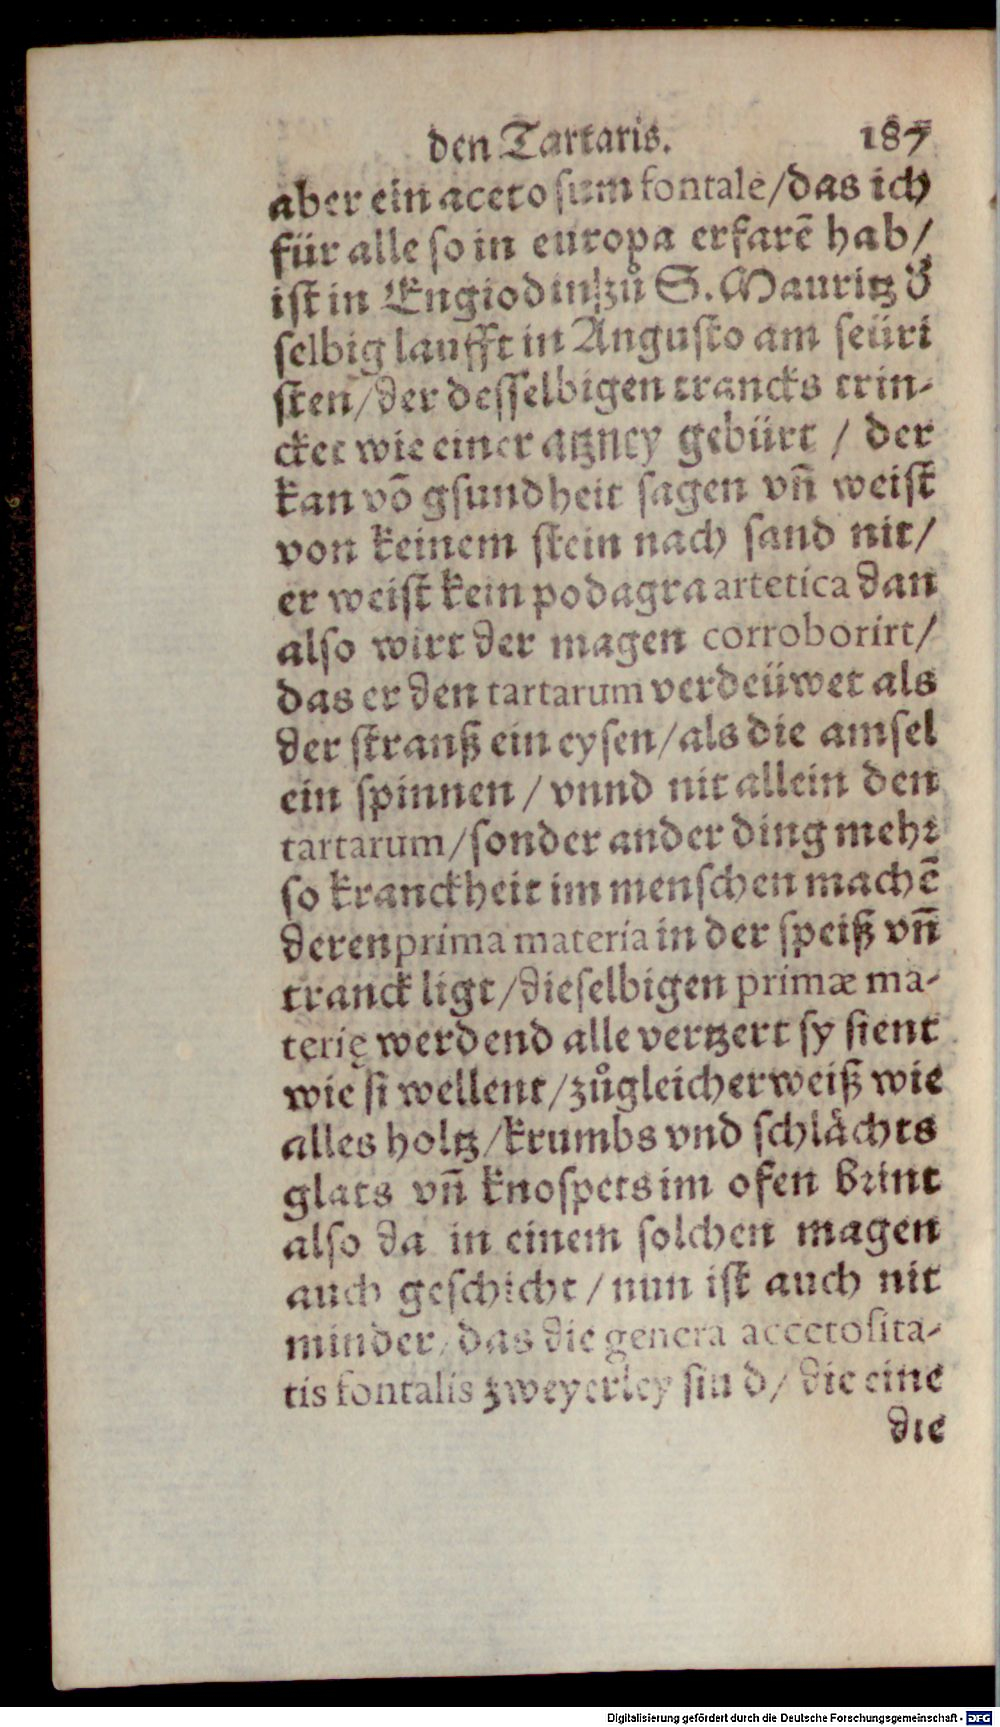 den Tartaris. 187
aber ein aceto sum fontale/das ich
für alle so in europa erfarē hab/
ist in Engiodin/zů S. Mauritz đ
selbig laufft in Augusto am seüri
sten/der desselbigen trancks trin-
cket wie einer artzney gebürt / der
kan võ gsundheit sagen vñ weist
von keinem stein nach sand nit/
er weist kein podagra artetica dan
also wirt der magen corroborirt/
das er den tartarum verdeüwet als
der strauß ein eysen/als die amsel
ein spinnen / vnnd nit allein den
tartarum/sonder ander ding mehr
so kranckheit im menschen machē
deren prima materia in der speiß vñ
tranck ligt/dieselbigen primæ ma-
terię werdend alle vertzert sy sient
wie si wellent/zůgleicher weiß wie
alles holtz/krumbs vnd schlächts
glats vñ knospets im ofen brint
also da in einem solchen magen
auch geschicht / nun ist auch nit
minder/das die genera accetosita-
tis fontalis zweyerley sind/die eine
die
Digitalisierung gefördert durch die Deutsche Forschungsgemeinschaft - DFG